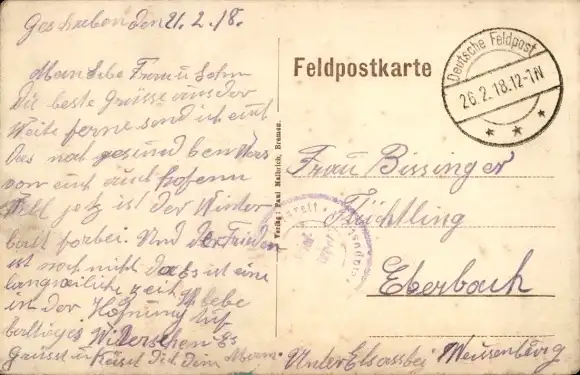 Geschrieben den 21.2.18.
Mein Liebe Frau u Sohn
Die beste Grüsse aus der
Weite ferne send ich euch
Das noch gesund ben Was
von euch auch hofenn
Will jetz ist der Winter
bast forbei. Und der Frieden
ist noch nicht da Es ist eine
langweiliche zeit. Ich lebe
in der Hofnung Auf
baltiges Widersehen Es
Grüsst u Küsst Dich Dein Mann.
Feldpostkarte
Deutsche Feldpost
26.2.18.12-1N
Frau Bissinger
Flüchtling
Eberbach
Unter Elsass bei Weusenburg
Verlag: Paul Malbrich, Bremen.